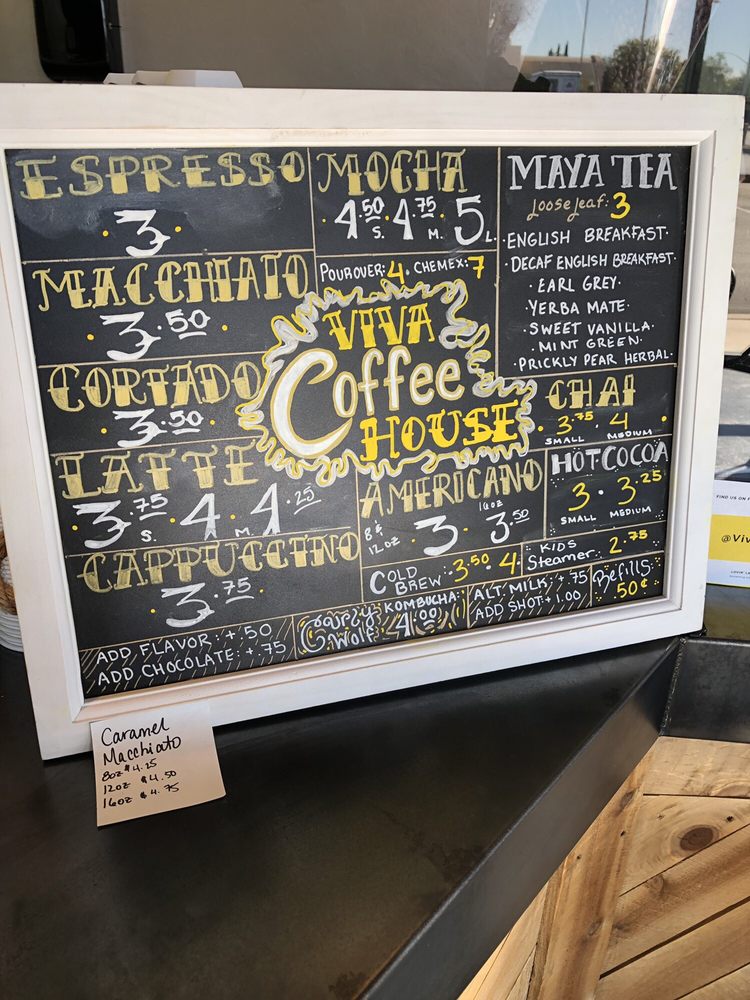 ESPRESSO
3.
MACCHIATO
3.50
CORTADO
3.50
LATTE
3.75 4. 4.25
S. M.
CAPPUCCINO
3.75
ADD FLAVOR: +.50
ADD CHOCOLATE: +.75
MOCHA
4.50 4.75 5
S. M. L
POUROVER: 4. CHEMEX: 7
VIVA
Coffee
HOUSE
AMERICANO
8 & 12oz 3. 16oz 3.50
COLD BREW: 3.50 4.
KOMBUCHA:
Wolf 4.00
MAYA TEA
loose leaf: 3
ENGLISH BREAKFAST.
DECAF ENGLISH BREAKFAST.
EARL GREY.
YERBA MATE.
SWEET VANILLA.
MINT GREEN.
PRICKLY PEAR HERBAL.
CHAI
3.75 4.
SMALL MEDIUM
HOT COCOA
3. 3.25
SMALL MEDIUM
KIDS Steamer: 2.75
ALT. MILK: +.75
ADD SHOT: +1.00
Refills:
50¢
Caramel
Macchiato
8oz $4.25
12oz $4.50
16oz $4.75
FIND US ON
@Viv